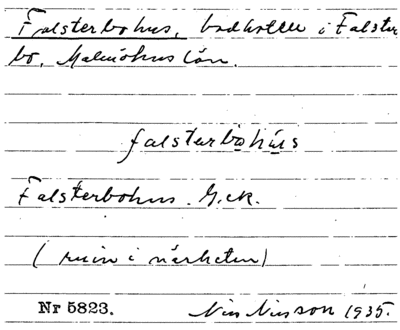 Falsterbohus, badhotell i Falster
bo, Malmöhus län.
falsterbohus
Falsterbohus. G.ck.
(ruin i närheten)
Nr 5823. Nils Nilsson 1935.